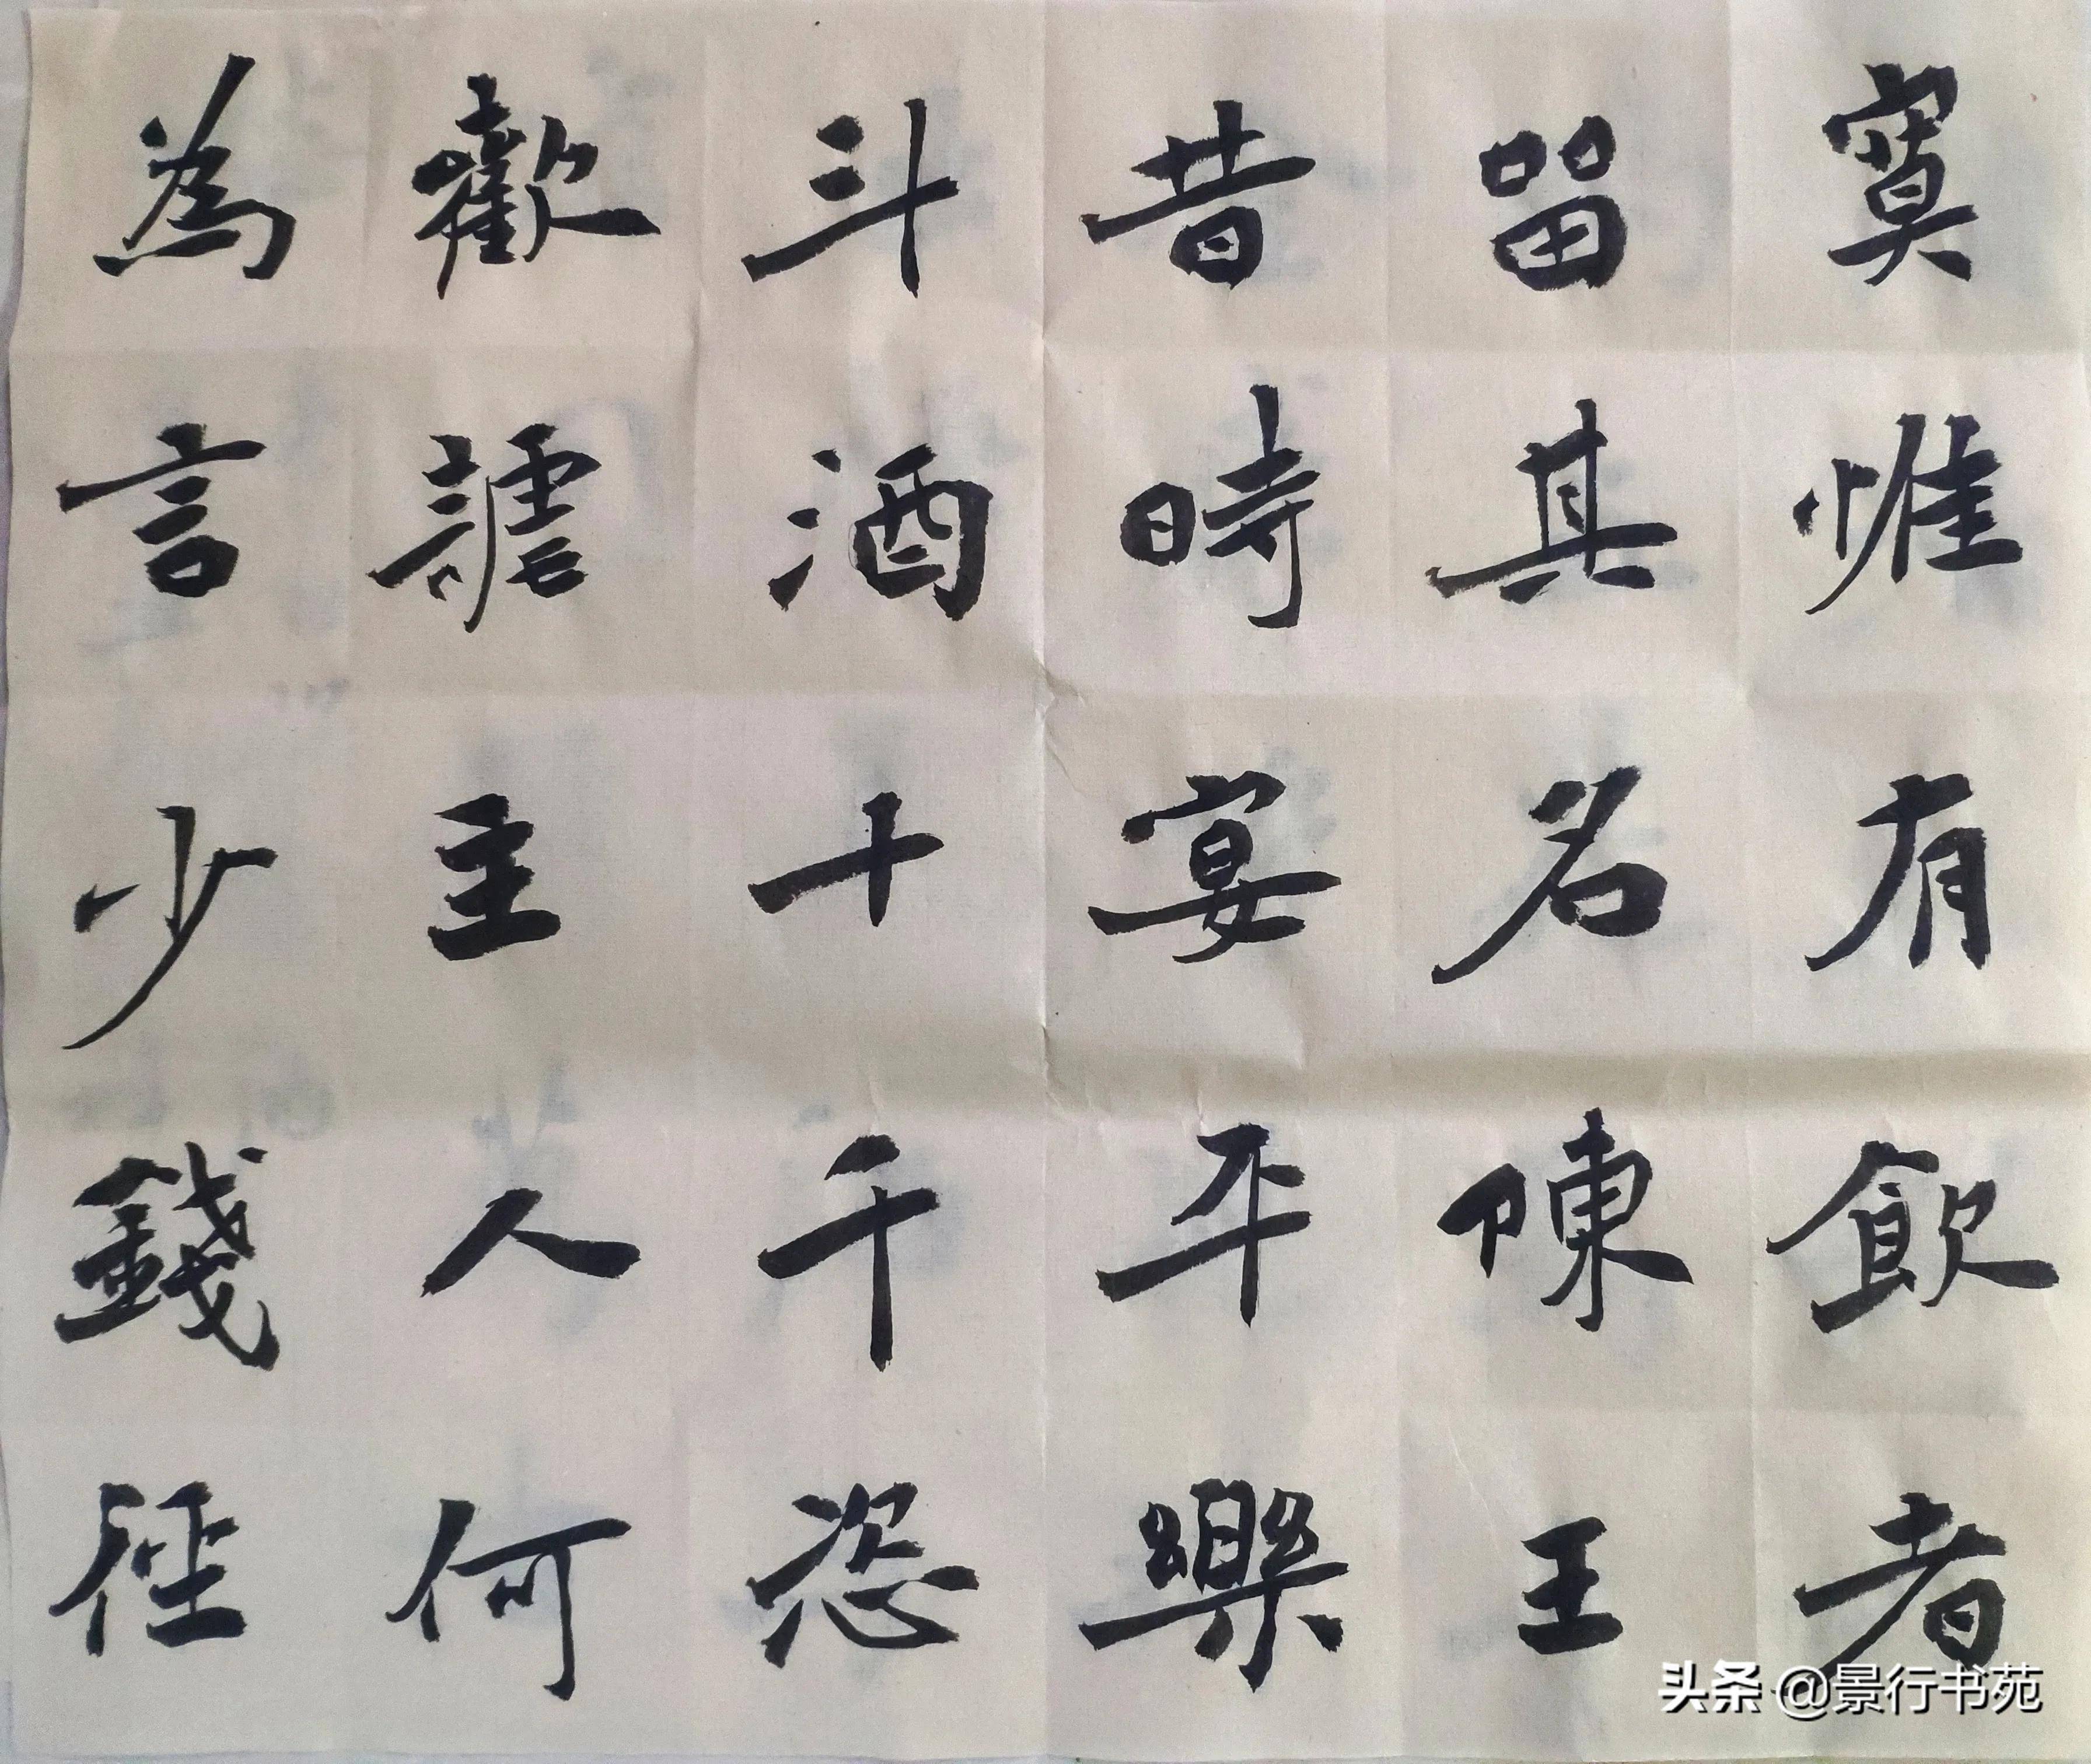 寞惟有飲者
留其名陳王
昔時宴平樂
斗酒十千恣
歡謔主人何
為言少錢徑
头条 @景行书苑